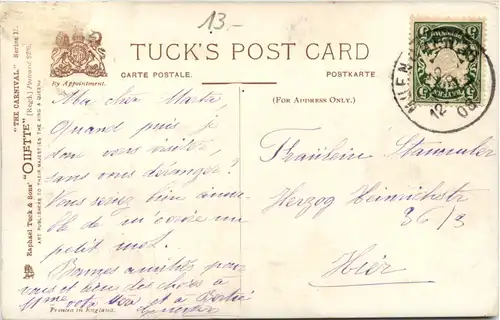 13.-
TUCK'S POST CARD
CARTE POSTALE.
POSTKARTE
By Appointment.
(FOR ADDRESS ONLY.)
Raphael Tuck & Sons' "OILETTE" "THE CARNIVAL" Series II.
(Regd.) Postcard
ART PUBLISHERS TO THEIR MAJESTIES THE KING & QUEEN
Ma cher Marta,
Quand puis je
don vous visiter,
sans vous déranger?
Vous seriez bien aima-
ble de m'écrire un
petit mot.
Bonnes amitiés pour
vous et bien des choses à
Mme votre et à
Printed in England.
BAYERN
12
Fräulein
Herzog Heinrichstr
36/3
Hier